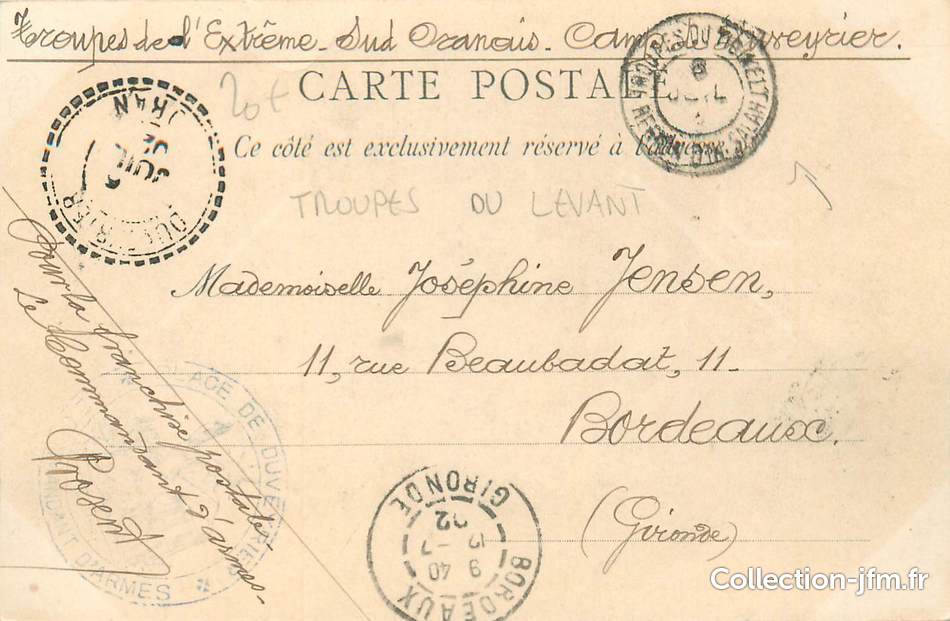 Troupes de l'Extrême-Sud Oranais - Camp Duveyrier.
CARTE POSTALE
20€
Ce côté est exclusivement réservé à l'adresse.
TROUPES DU
8
JUIL
ORAN
JUIL
DUVEYRIER
TROUPES DU LEVANT
Mademoiselle Joséphine Jensen,
11, rue Beaubadat, 11-
Bordeaux.
(Gironde)
Pour la franchise postale
Le Commandant d'armes-
PLACE DE DUVEYRIER
COMMANDANT D'ARMES
BORDEAUX
9 40
-7
02
GIRONDE
Collection-jfm.fr